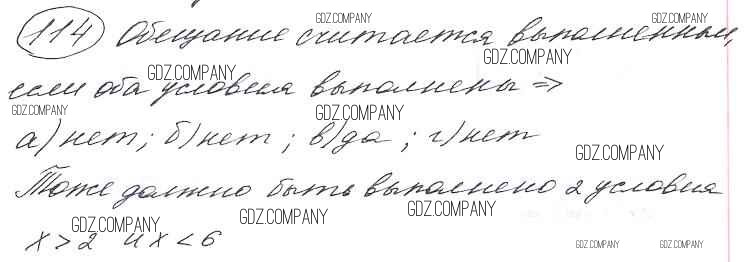 114 Обещание считается выполненным,
если оба условия выполнены =>
а) нет; б) нет; в) да; г) нет
Тоже должно быть выполнено 2 условия
x > 2 и x < 6
GDZ.COMPANY
GDZ.COMPANY
GDZ.COMPANY
GDZ.COMPANY
GDZ.COMPANY
GDZ.COMPANY
GDZ.COMPANY
GDZ.COMPANY
GDZ.COMPANY
GDZ.COMPANY
GDZ.COMPANY
GDZ.COMPANY